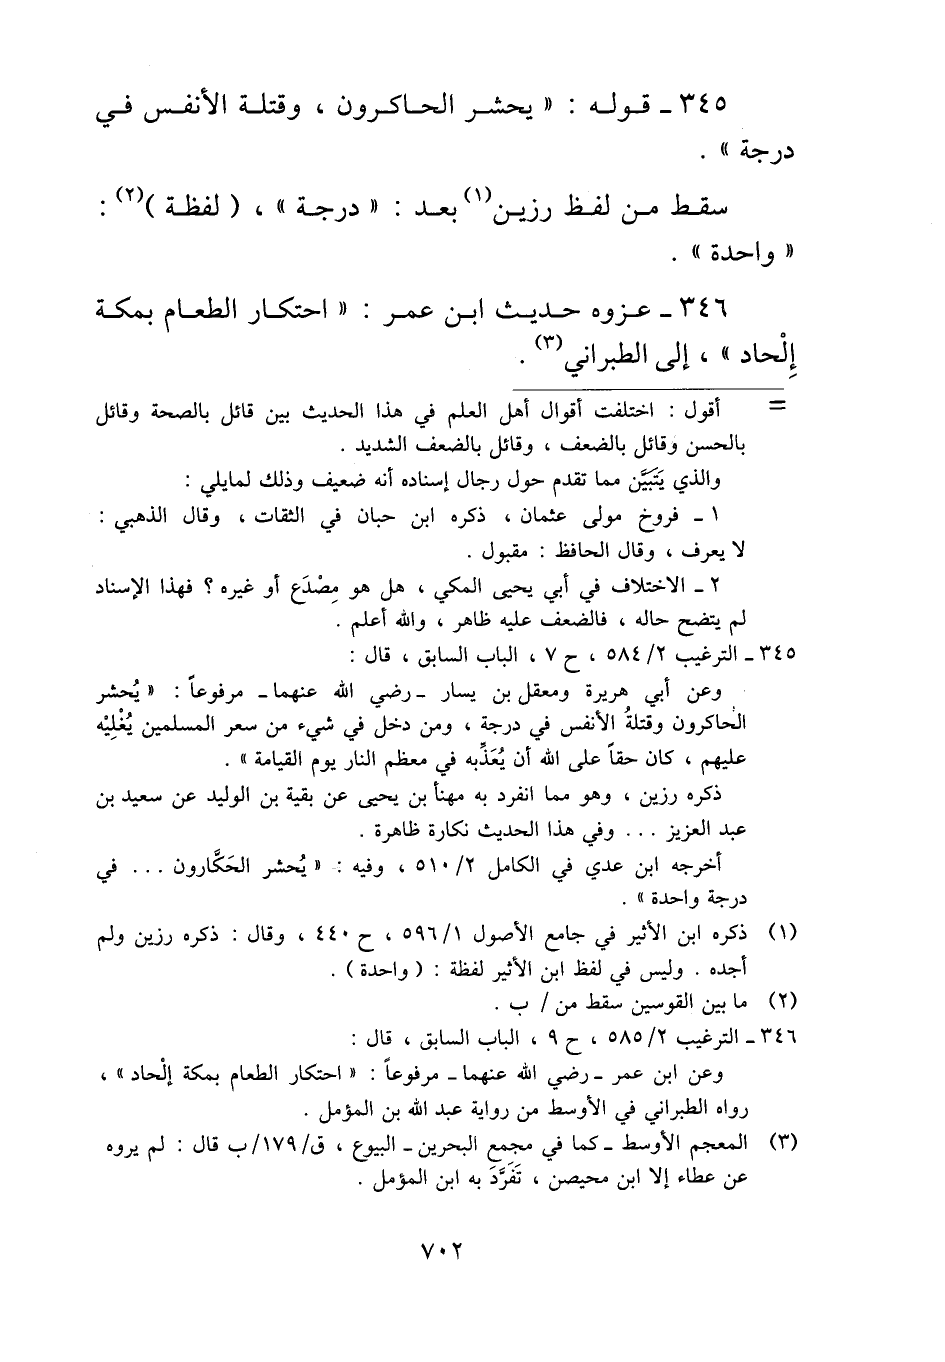 ٣٤٥ ـ قوله : « يحشر الحاكرون ، وقتلة الأنفس في
درجة » .
سقط من لفظ رزين(١) بعد : « درجة » ، ( لفظة )(٢) :
« واحدة » .
٣٤٦ ـ عزوه حديث ابن عمر : « احتكار الطعام بمكة
إِلْحاد » ، إلى الطبراني(٣) .
= أقول : اختلفت أقوال أهل العلم في هذا الحديث بين قائل بالصحة وقائل
بالحسن وقائل بالضعف ، وقائل بالضعف الشديد .
والذي يَتَبَيَّن مما تقدم حول رجال إسناده أنه ضعيف وذلك لمايلي :
١ ـ فروخ مولى عثمان ، ذكره ابن حبان في الثقات ، وقال الذهبي :
لا يعرف ، وقال الحافظ : مقبول .
٢ ـ الاختلاف في أبي يحيى المكي ، هل هو مِصْدَع أو غيره ؟ فهذا الإسناد
لم يتضح حاله ، فالضعف عليه ظاهر ، والله أعلم .
٣٤٥ ـ الترغيب ٥٨٤/٢ ، ح ٧ ، الباب السابق ، قال :
وعن أبي هريرة ومعقل بن يسار ـ رضي الله عنهما ـ مرفوعاً : « يُحشر
الحاكرون وقتلةُ الأنفس في درجة ، ومن دخل في شيء من سعر المسلمين يُغْلِيْه
عليهم ، كان حقاً على الله أن يُعَذِّبه في معظم النار يوم القيامة » .
ذكره رزين ، وهو مما انفرد به مهنأ بن يحيى عن بقية بن الوليد عن سعيد بن
عبد العزيز ... وفي هذا الحديث نكارة ظاهرة .
أخرجه ابن عدي في الكامل ٥١٠/٢ ، وفيه : « يُحشر الحَكَّارون ... في
درجة واحدة » .
(١) ذكره ابن الأثير في جامع الأصول ٥٩٦/١ ، ح ٤٤٠ ، وقال : ذكره رزين ولم
أجده . وليس في لفظ ابن الأثير لفظة : ( واحدة ) .
(٢) ما بين القوسين سقط من / ب .
٣٤٦ ـ الترغيب ٥٨٥/٢ ، ح ٩ ، الباب السابق ، قال :
وعن ابن عمر ـ رضي الله عنهما ـ مرفوعاً : « احتكار الطعام بمكة إلْحاد » ،
رواه الطبراني في الأوسط من رواية عبد الله بن المؤمل .
(٣) المعجم الأوسط ـ كما في مجمع البحرين ـ البيوع ، ق/١٧٩/ب قال : لم يروه
عن عطاء إلا ابن محيصن ، تَفَرَّدَ به ابن المؤمل .
٧٠٢